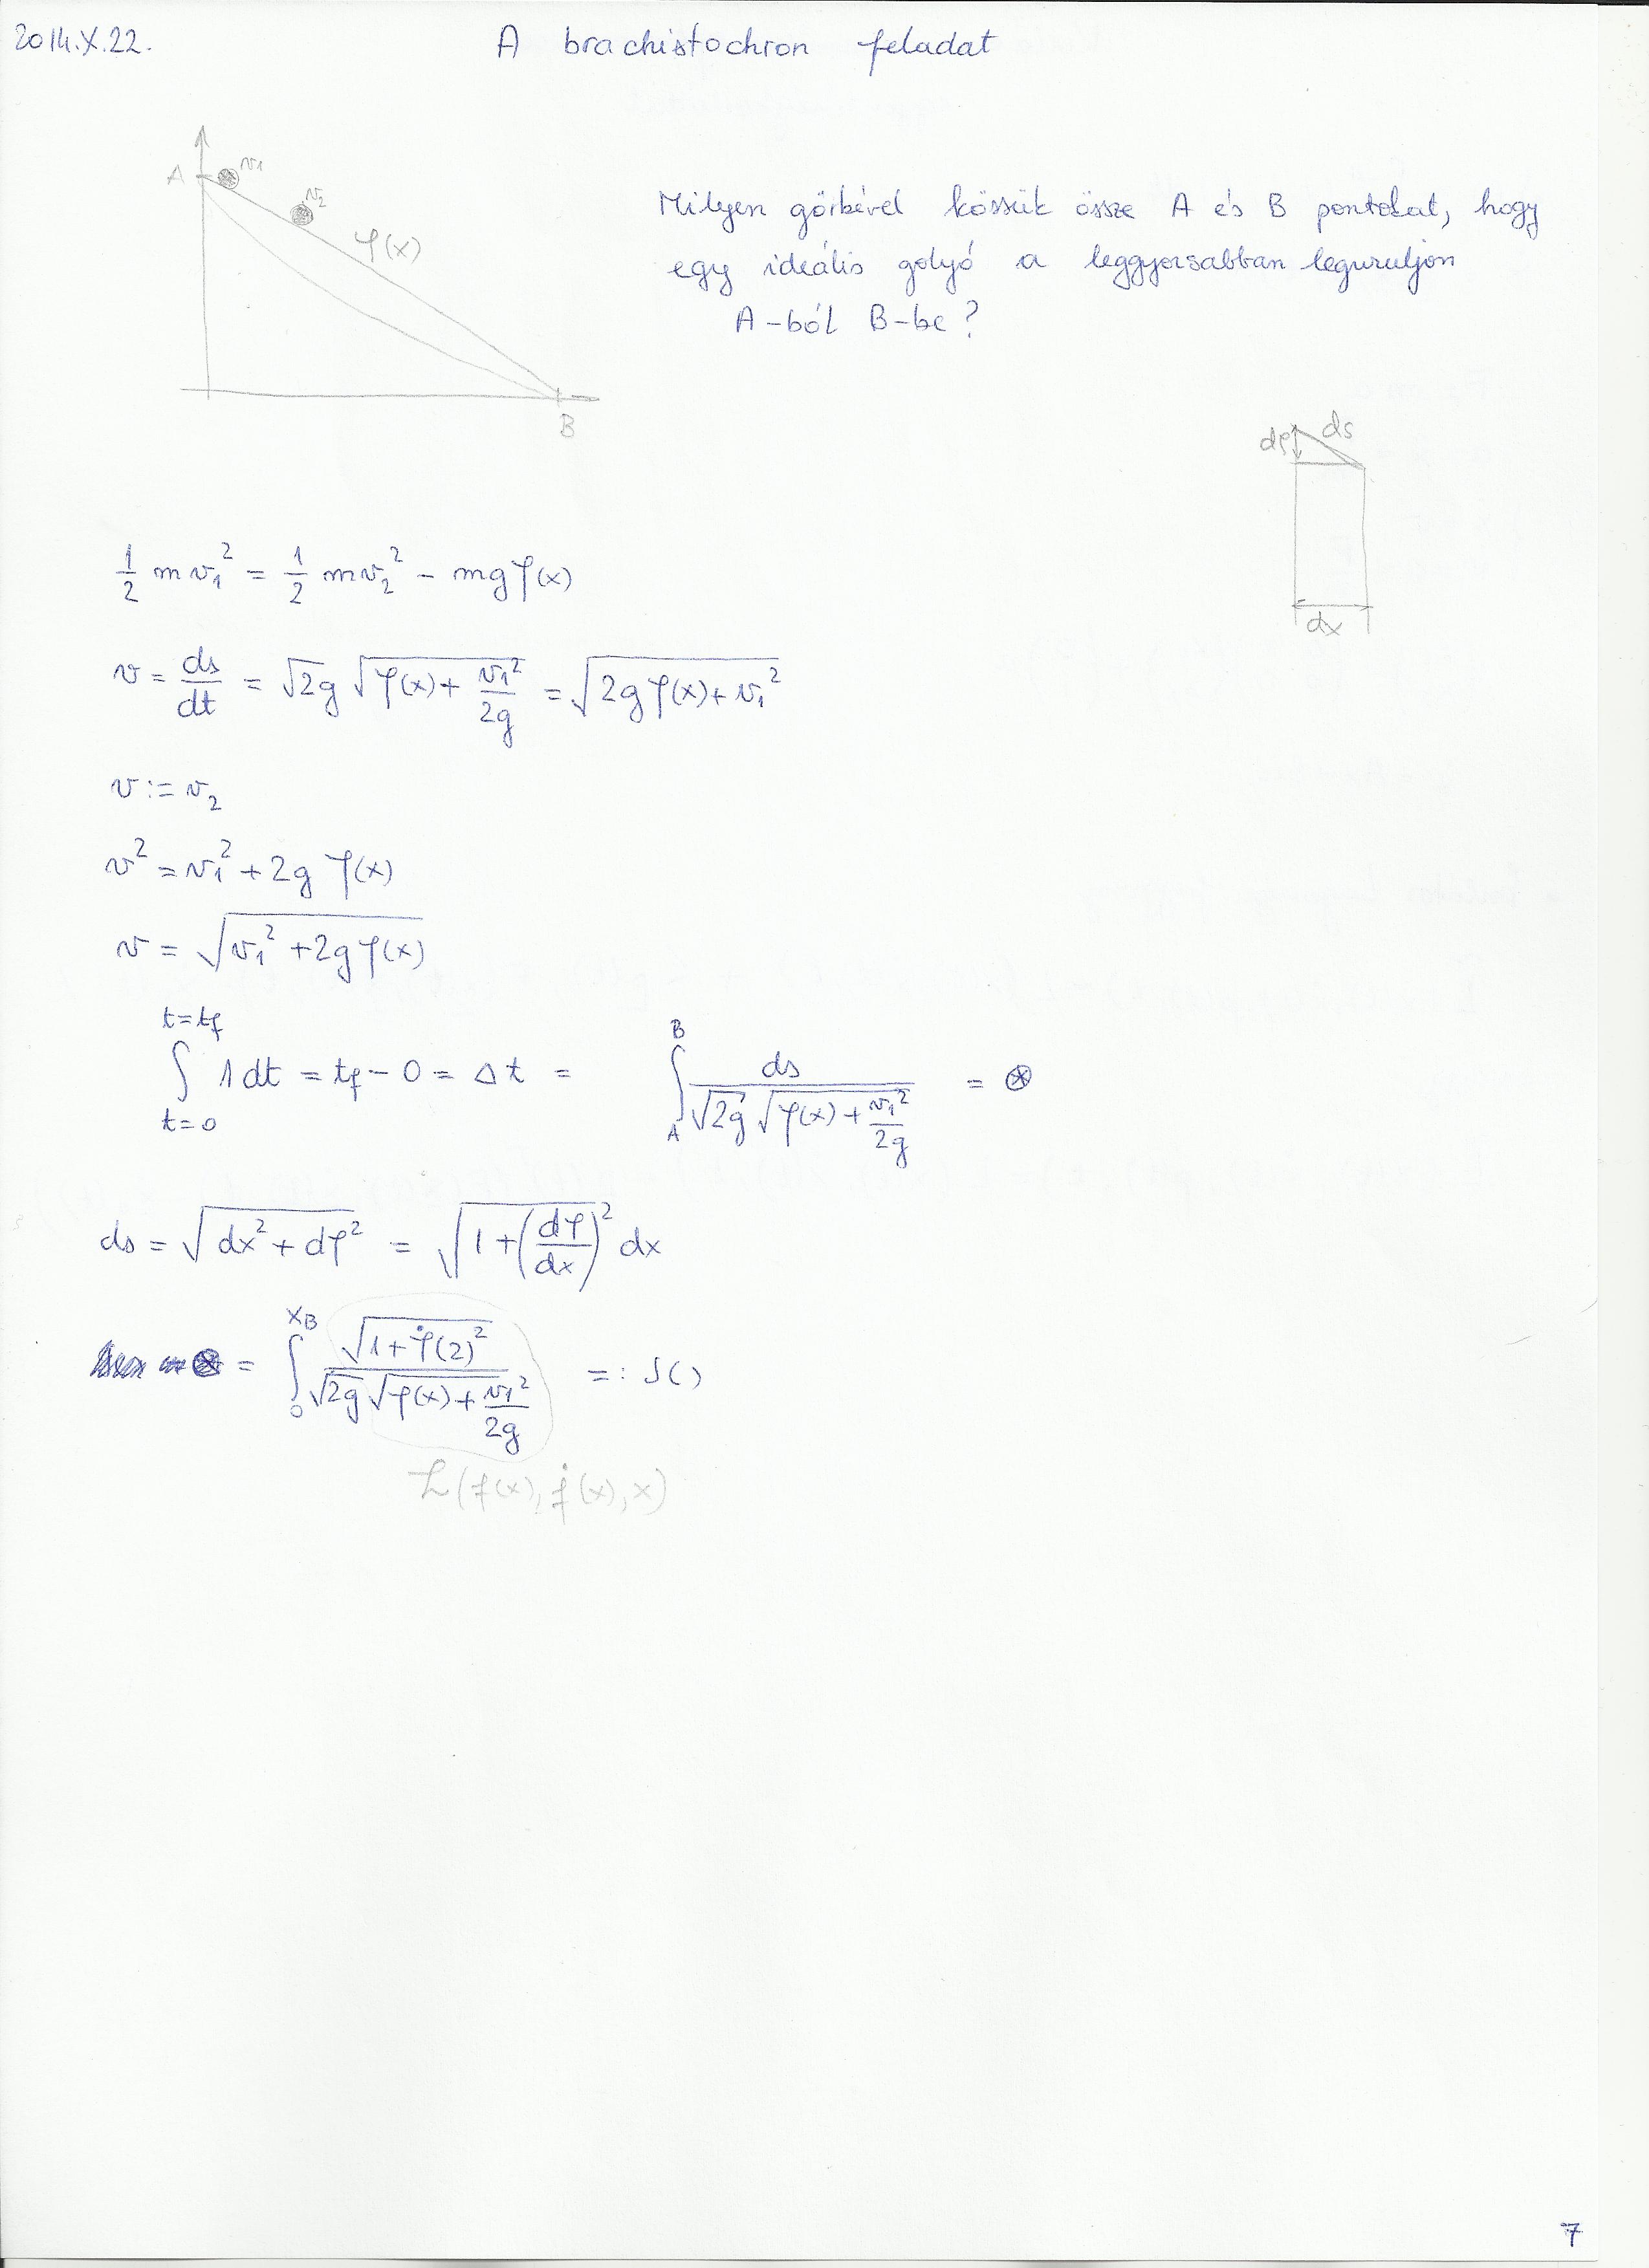 2014.X.22.
A brachistochron feladat
A v₁
v₂
φ(x)
B
Milyen görbével kössük össze A és B pontokat, hogy
egy ideális golyó a leggyorsabban leguruljon
A-ból B-be?
dφ ds
dx
1/2 m v₁² = 1/2 m v₂² - mg φ(x)
v = ds/dt = √2g √(φ(x) + v₁²/2g) = √(2g φ(x) + v₁²)
v := v₂
v² = v₁² + 2g φ(x)
v = √(v₁² + 2g φ(x))
∫_{t=0}^{t=tf} 1 dt = tf - 0 = Δt = ∫_A^B ds / (√2g √(φ(x) + v₁²/2g)) = ⊛
ds = √(dx² + dφ²) = √(1 + (dφ/dx)²) dx
⊛ = ∫_0^{x_B} √(1 + φ̇(2)²) / (√2g √(φ(x) + v₁²/2g)) =: S()
L(f(x), ḟ(x), x)
7